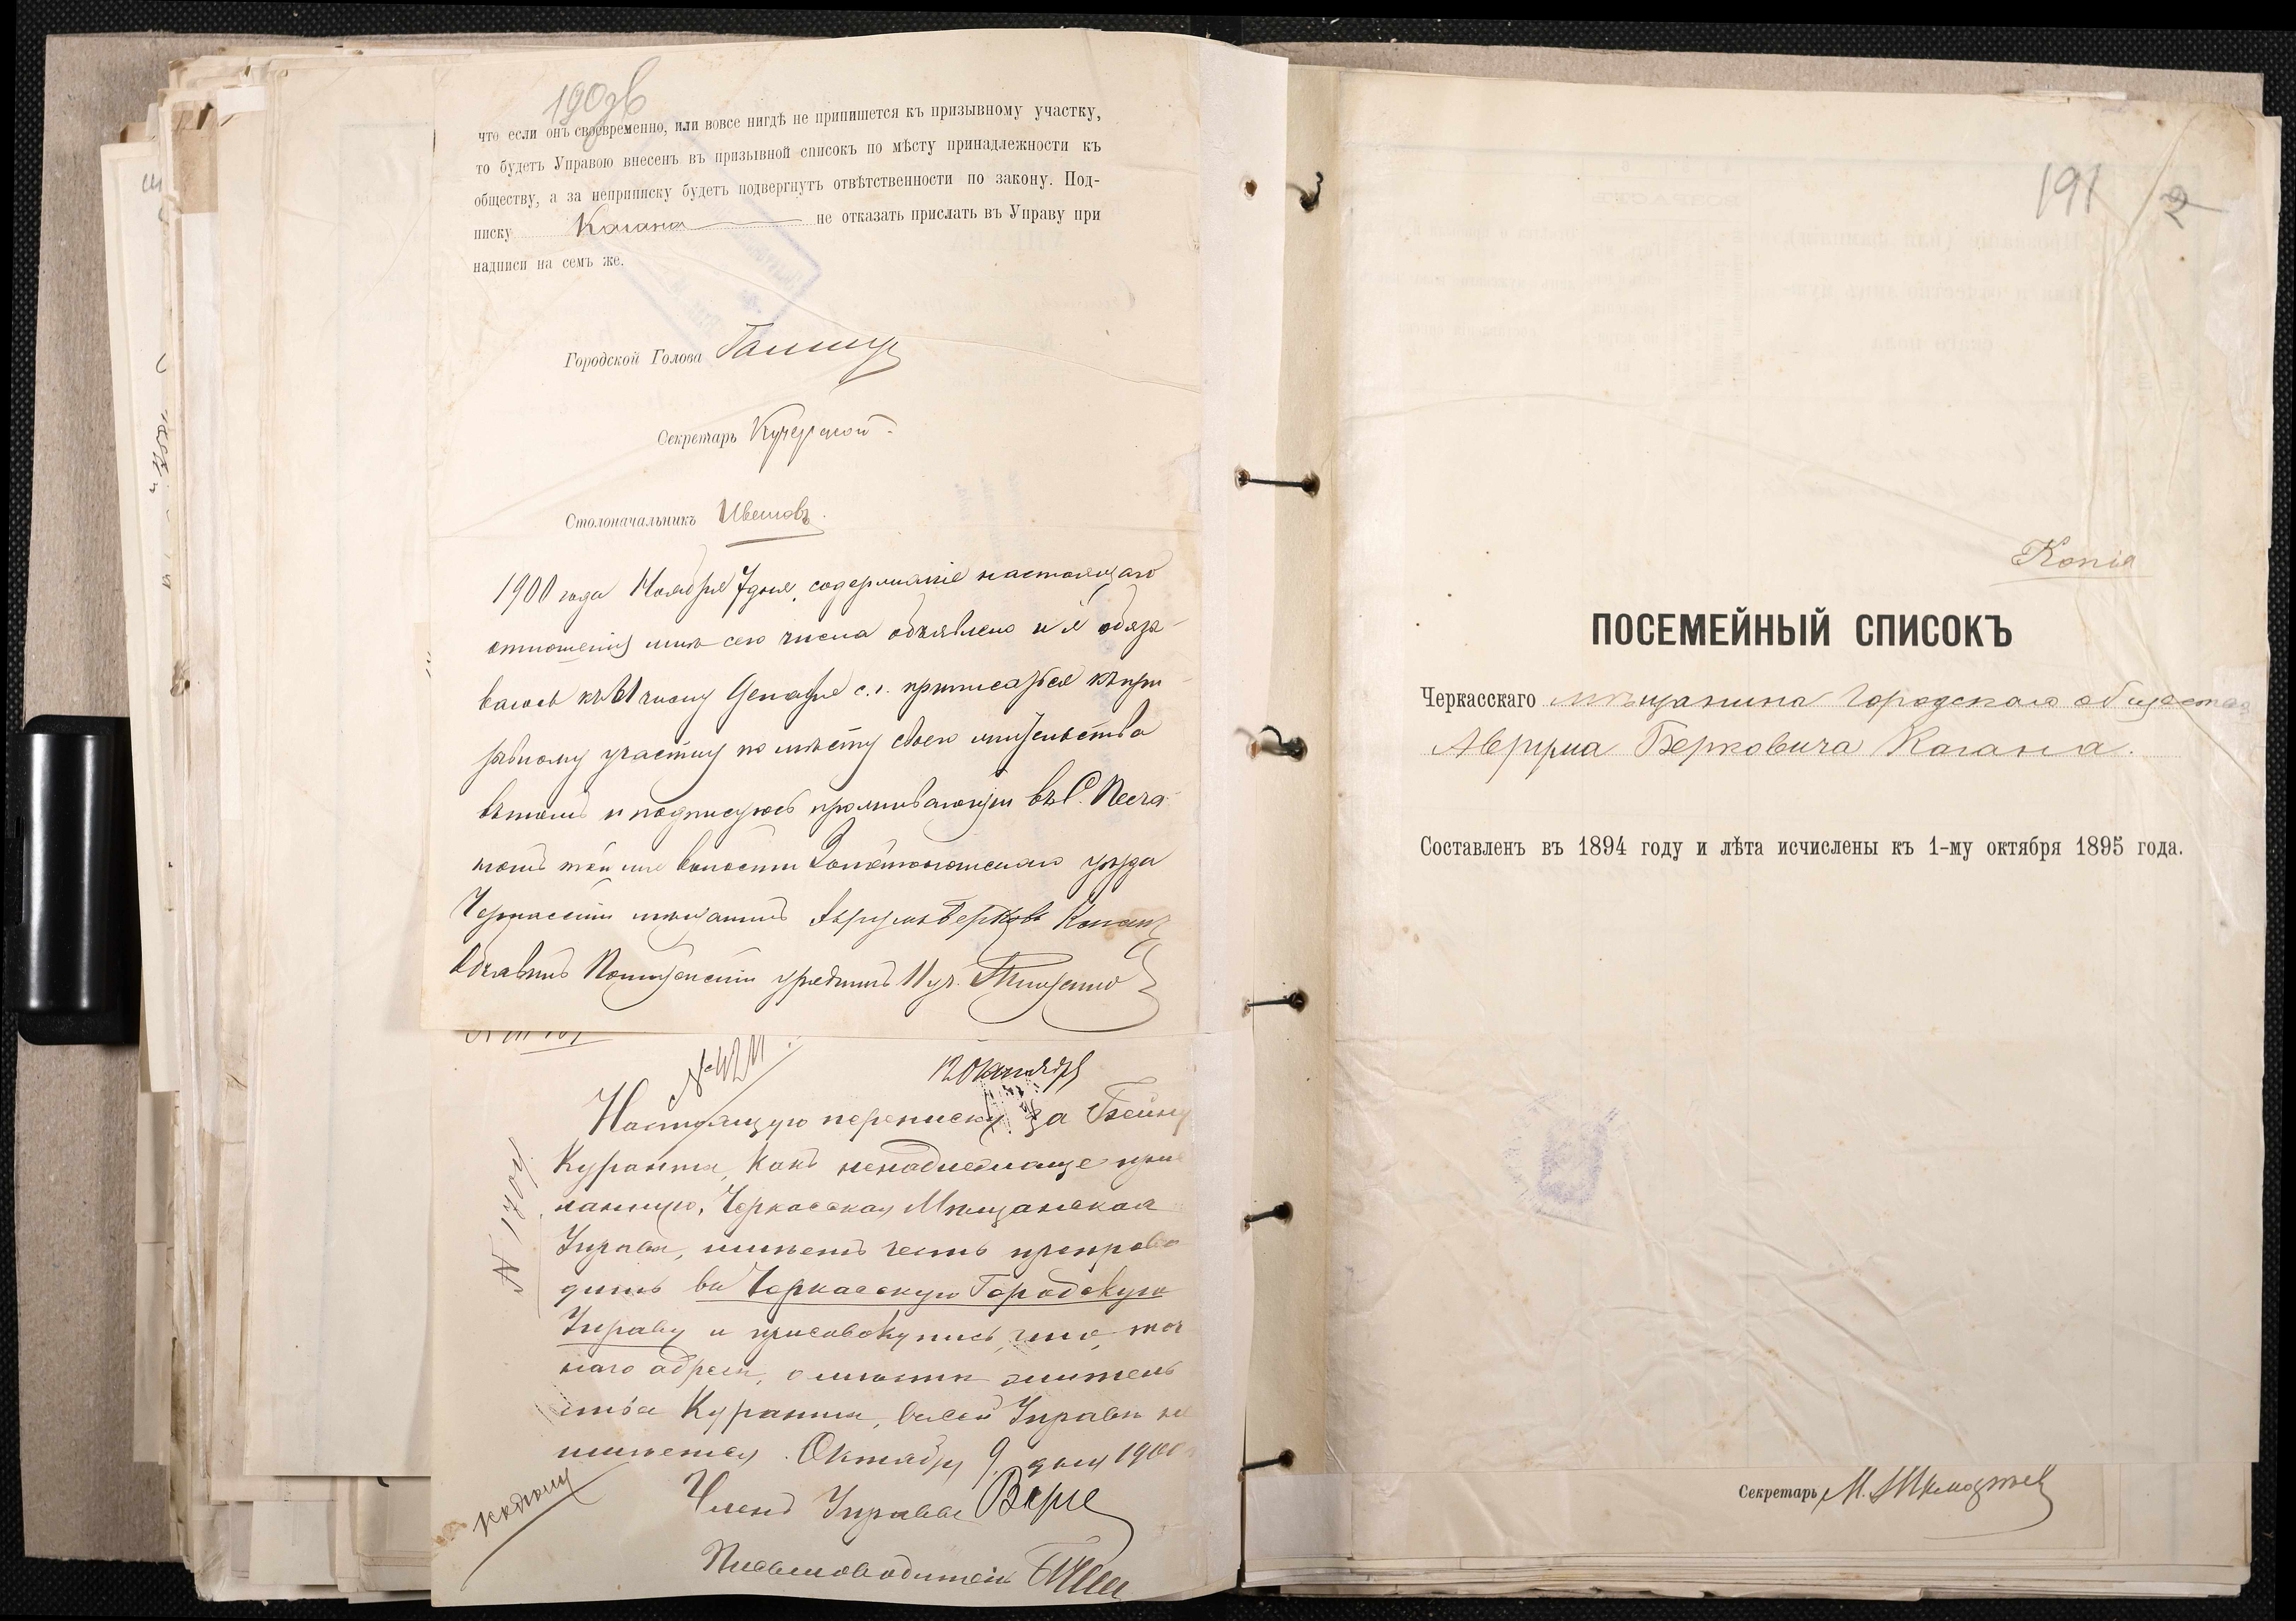 190 об
что если онъ своевременно, или вовсе нигдѣ не припишется къ призывному участку,
то будетъ Управою внесенъ въ призывной списокъ по мѣсту принадлежности къ
обществу, а за неприписку будетъ подвергнутъ отвѣтственности по закону. Под-
писку Кагана не отказать прислать въ Управу при
надписи на семъ же.
Городской Голова
Секретарь
Столоначальникъ
1900 года Ноября 7 дня, содержаніе настоящаго
отношенія мнѣ сего числа объявлено и я обязы-
ваюсь къ 31 числу Декабря с. г. приписаться къ при-
зывному участку по мѣсту своего жительства
въ чемъ и подписуюсь проживающій въ С. Песча-
номъ той же волости Золотоношскаго уѣзда
Черкасскій мѣщанинъ Аврумъ Берковъ Каганъ
Объявилъ Полицейскій урядникъ 11 уч.
№ 4211
12 Октября
Настоящую переписку за Бейну
Куранта, какъ ненадлежаще прис
ланную, Черкасская Мѣщанская
Управа, имѣетъ честь препрово
дить въ Черкасскую Городскую
Управу и присовокупить, что точ
наго адреса, о мѣстѣ житель
ства Куранта, въ сей Управѣ не
имѣется. Октября 9 дня 1900
№ 1704
Членъ Управы
Письмоводитель
191
2
Копія
ПОСЕМЕЙНЫЙ СПИСОКЪ
Черкасскаго мѣщанина Городскаго общества
Аврума Берковича Кагана.
Составленъ въ 1894 году и лѣта исчислены къ 1-му октября 1895 года.
Секретарь